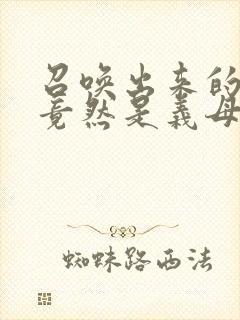 召唤出来的
竟然是义母
蜘蛛路西法